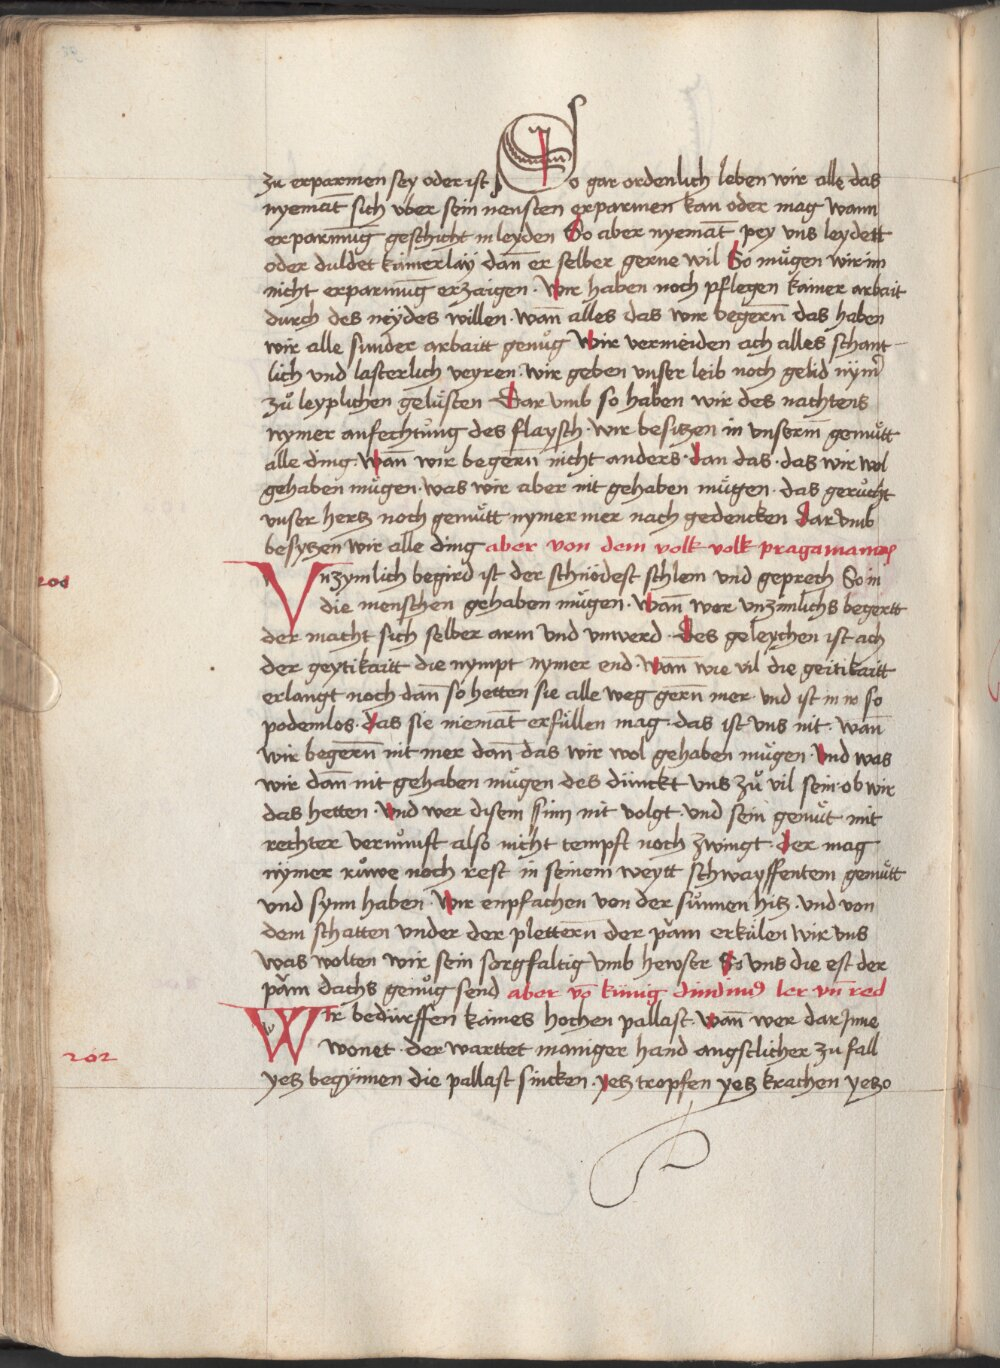 zu erparmen sey oder ist So gar ordenlich leben wir alle das
nyemāt sich vber sein nensten erparmen kan oder mag wann
erparmūg geschicht in leyden So aber nyemāt pey vns leydett
oder duldet kainerlaÿ dañ er selber gerne wil So mügen wir im
nicht erparmūg erzaigen · Wir haben noch pflegen kainer arbait
durch des neÿdes willen · wañ alles das wir begerñ das haben
wir alle sunder arbaitt genůg Wir vermeiden ach alles schant
lich vnd lasterlich veyren · wir geben vnser leib noch gelid nÿm̄
zů leyplichen gelüsten Dar vmb so haben wir des nachtens
nymer anfechtůng des flaysch · wir besitzen in vnserm̄ gemütt
alle ding · Wañ wir begerñ nicht anders · dan das · das wir wol
gehaben mügen · was wir aber nit gehaben mügen · das gerůcht
vnser hertz noch gemütt nymer mer nach gedencken Dar vmb
besytzen wir alle ding aber von dem volk volk pragamanas
Vnzymlich begird ist der schnödest schlem vnd geprech So in
die menschen gehaben mügen · Wañ wer vnzimlichs begertt
der macht sich selber arm vnd vnwerd · Des geleychen ist ach
der geytikaitt die nympt nymer end · Wañ wie vil die geitikaitt
erlangt noch dañ so hetten sie alle weg gerñ mer vnd ist in so
podemlos · das sie niemāt erfüllen mag · das ist vns nit · wañ
wir begerñ nit mer dañ das wir wol gehaben mügen · Vnd was
wir dañ nit gehaben mügen des dünckt vns zů vil sein · ob wir
das hetten · Vnd wer disem sinn nit volgt · vnd sein gemüt mit
rechter vernůnft also nicht tempft noch zwingt · der mag
nÿmer růwe noch rest in seinem weytt schwayffentem gemütt
vnd synn haben · Wir enpfachen von der sünnen hitz · vnd von
dem schatten vnder der pletterñ der päm erkülen wir vns
was wolten wir sein sorgfaltig vmb hewser So vns die est der
päm dachs genůg send aber võ künig dindimus ler vñ red
Wir bedürffen kaines hochen pallast · wañ wer dar jnne
wonet · der warttet maniger hand angstlicher zu fall
yetz begÿnnen die pallast sincken · yetz tropfen yetz krachen yetzo
202